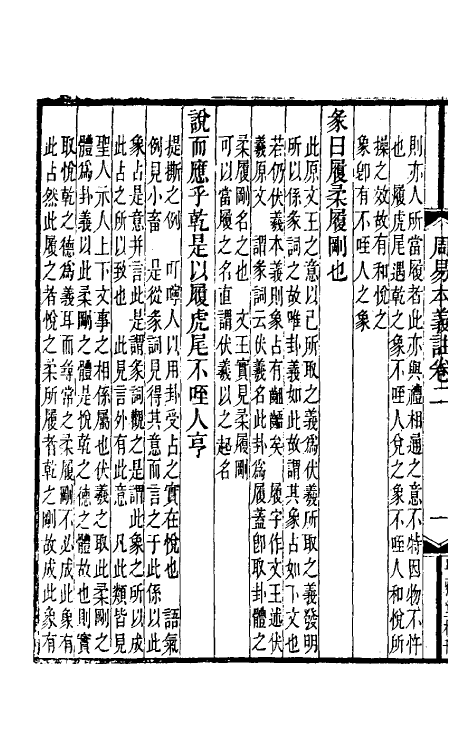 周易本義註卷二　一
則亦人所當履者此亦與禮相通之意不特因物不忤
也　履虎尾遇乾之象不咥人兌之象不咥人和悅所
操之效故有和悅之
象卽有不咥人之象
彖曰履柔履剛也
此原文王之意以已所取之義爲伏羲所取之義發明
所以係彖詞之故唯卦義如此故謂其象占如下文也
若仍伏羲本義則象占有齟齬矣　履字作文王述伏
羲原文　謂彖詞云伏羲名此卦爲履蓋卽取卦體之
柔履剛名之也　文王實見柔履剛
可以當履之名直謂伏羲以之起名
說而應乎乾是以履虎尾不咥人亨
提撕之例　叮嚀人以用卦受占之實在悅也　語氣
例見小畜　是從彖詞見得其意而言之于此係以此
象占是意并言此是謂彖詞觀之是謂此象之所以成
此占之所以致也　此見言外有此意　凡此類皆見
聖人示人上下文事之相係屬也伏羲之取此柔剛之
體爲卦義以此柔剛之體是悅乾之德之體故也則實
取悅乾之德爲義耳而尋常之柔履剛不必成此象有
此占然此履之者悅之柔所履者乾之剛故成此象有